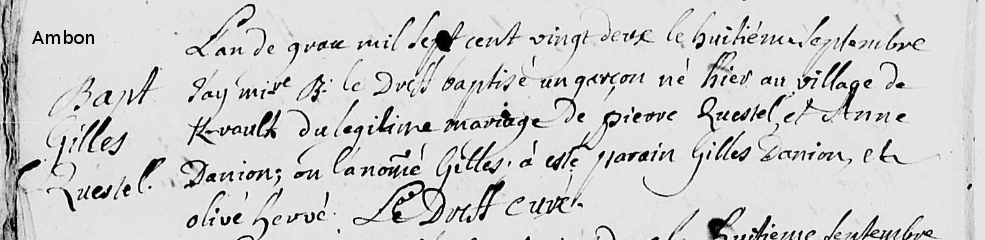 Ambon
Lan de grace mil sept cent vingt deux le huitiéme septembre
Bapt
Gilles
Questel.
J'ay mire B. le Drff baptisé un garçon né hier au village de
K-vault du legitime mariage de pierre Questel, et Anne
Danion; on l'a nomé Gilles; a esté parain Gilles Danion, et
olivé hervé. Le Drff curé.
huitieme septembre